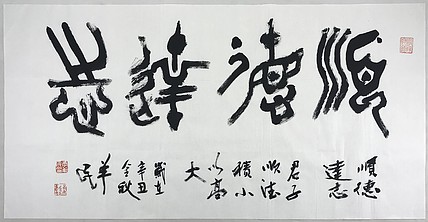 順德達志
順德
達志
君子
順德
積小
以高
大
歲在
辛丑
秋
羊